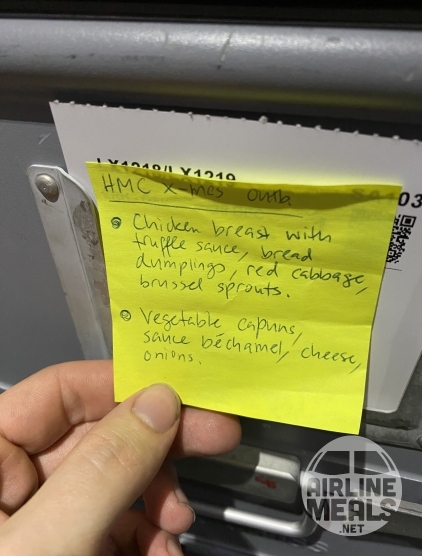 LX1218/LX1219
HMC X-mas outb
Chicken breast with
truffle sauce, bread
dumplings, red cabbage,
brussel sprouts.
Vegetable capuns,
sauce béchamel, cheese,
onions.
03
AIRLINE
MEALS
.NET